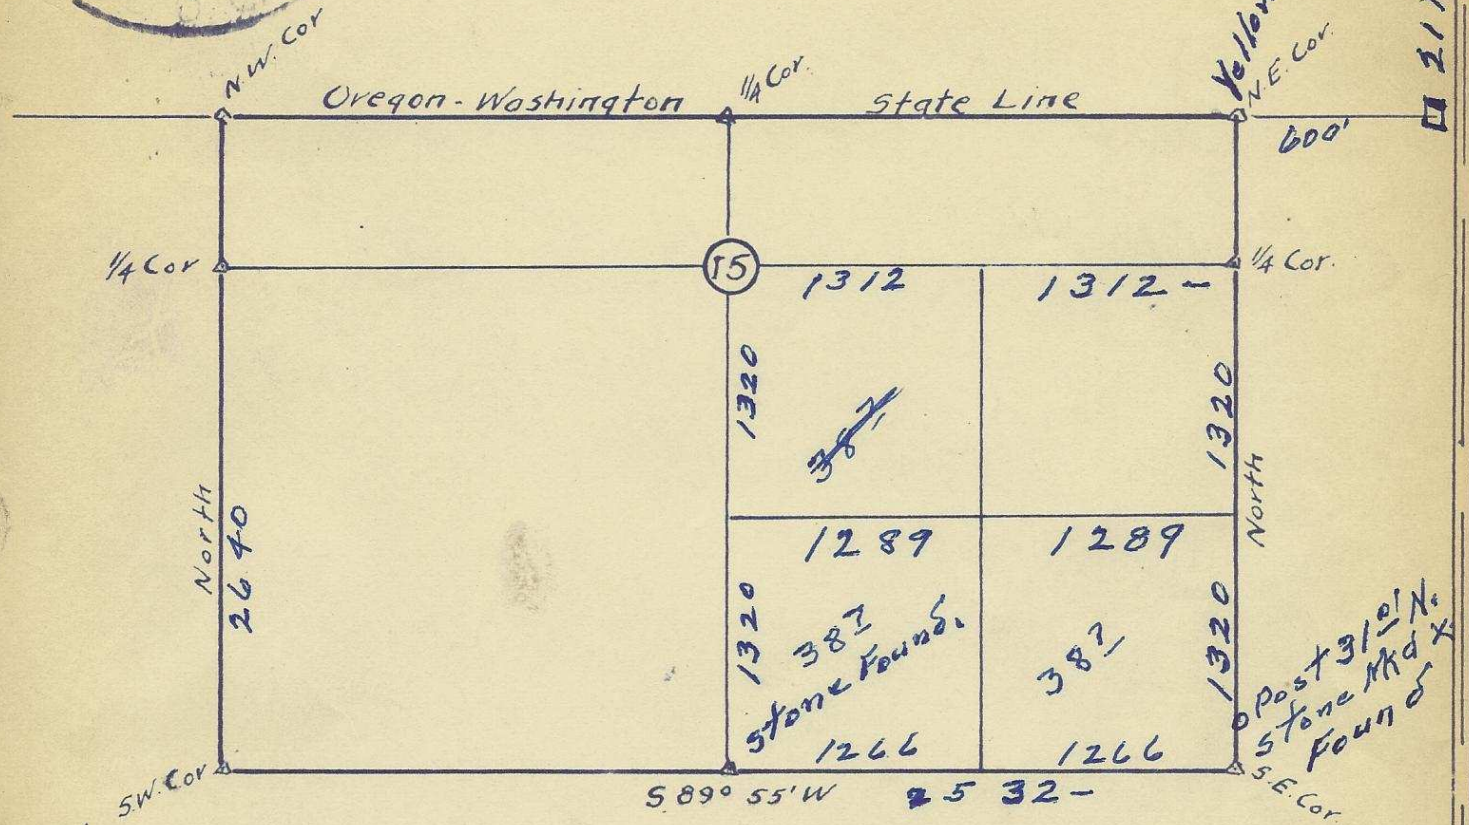 N.W. Cor
Oregon - Washington
1/4 Cor.
State Line
Yellow
N.E. Cor.
217
600'
1/4 Cor
15
1/4 Cor.
1312
1312 -
1320
1320
387
North
2640
North
1289
1289
1320
1320
387
Stone Found.
387
Post 31 01 N.
Stone Mkd X
Found
1266
1266
S.W. Cor
S 89° 55' W
2532 -
S.E. Cor